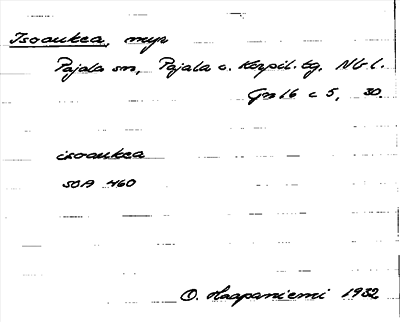 Isoaukea, myr
Pajala sn, Pajala c. Korpil. tg. Nb l.
Gn 16 c 5, 30.
isoaukea
SOA 460
O. Haapaniemi 1932